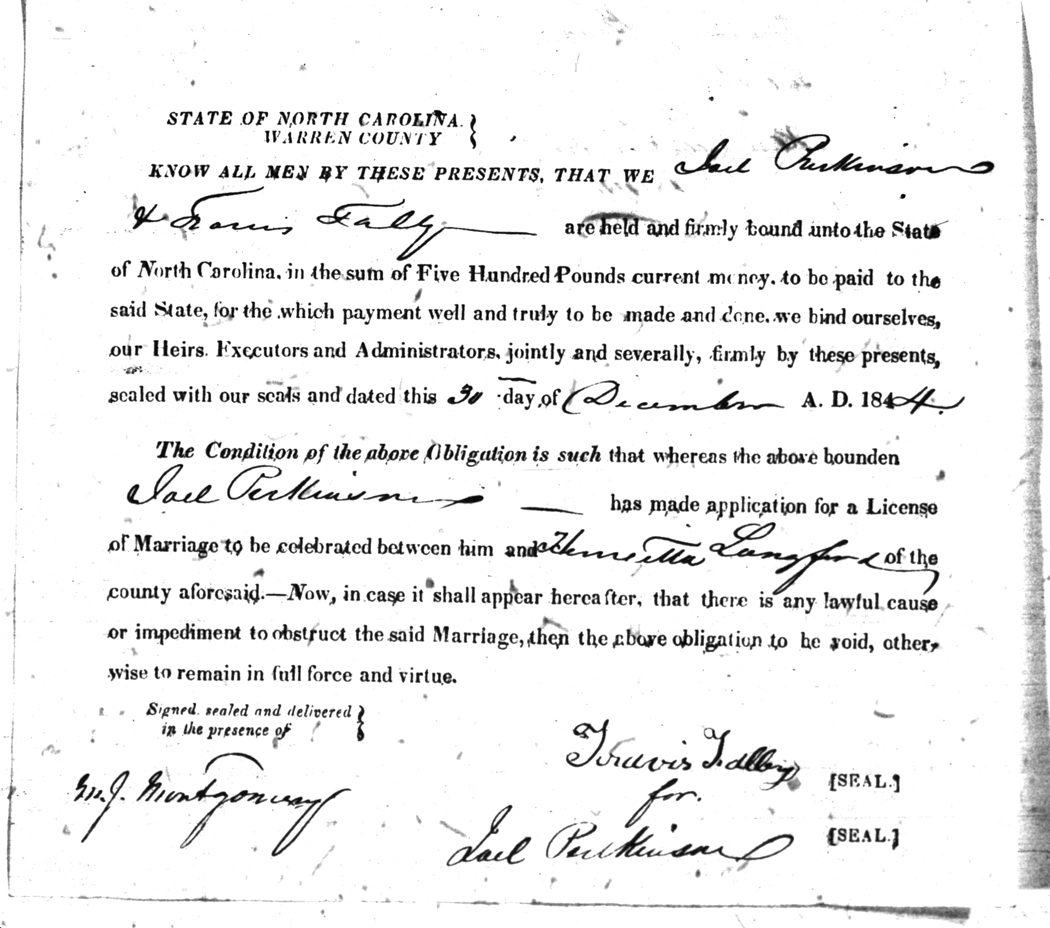 STATE OF NORTH CAROLINA. }
WARREN COUNTY
KNOW ALL MEN BY THESE PRESENTS, THAT WE Joel Perkinson
& Travis Talley are held and firmly bound unto the State
of North Carolina, in the sum of Five Hundred Pounds current money, to be paid to the
said State, for the which payment well and truly to be made and done, we bind ourselves,
our Heirs, Executors and Administrators, jointly and severally, firmly by these presents,
sealed with our seals and dated this 30 day of December A. D. 1844.
The Condition of the above Obligation is such that whereas the above bounden
Joel Perkinson has made application for a License
of Marriage to be celebrated between him and Henrietta Langford of the
county aforesaid.—Now, in case it shall appear hereafter, that there is any lawful cause
or impediment to obstruct the said Marriage, then the above obligation to be void, other-
wise to remain in full force and virtue.
Signed, sealed and delivered }
in the presence of
Travis Talley [SEAL.]
for.
Montgomery
Joel Perkinson [SEAL.]